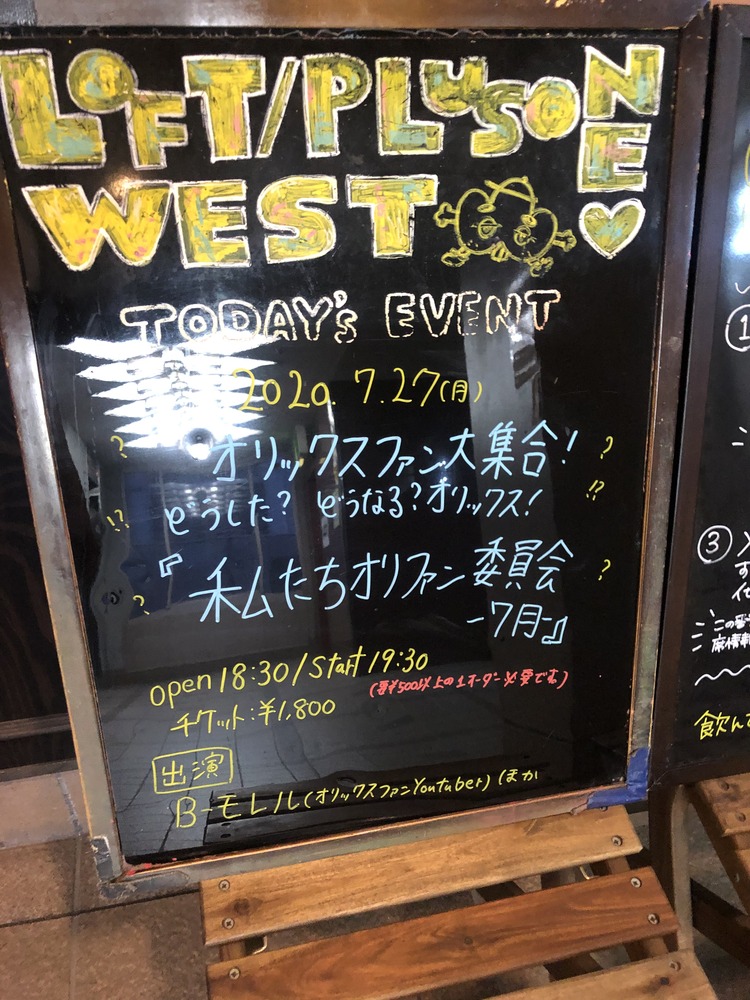 LOFT/PLUSONE
WEST
TODAY's EVENT
2020. 7.27(月)
オリックスファン大集合!
どうした? どうなる?オリックス!
『私たちオリファン委員会
-7月-』
open 18:30/start 19:30
(要¥500以上の1オーダー必要です。)
チケット:¥1,800
出演
B-モレル(オリックスファンYoutuber)ほか
1
3
この番
飲んで